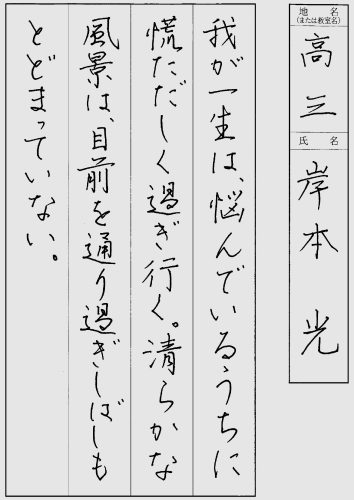 地名
(または教室名)
高三
氏名
岸本光
我が一生は、悩んでいるうちに
慌ただしく過ぎ行く。清らかな
風景は、目前を通り過ぎしばしも
とどまっていない。